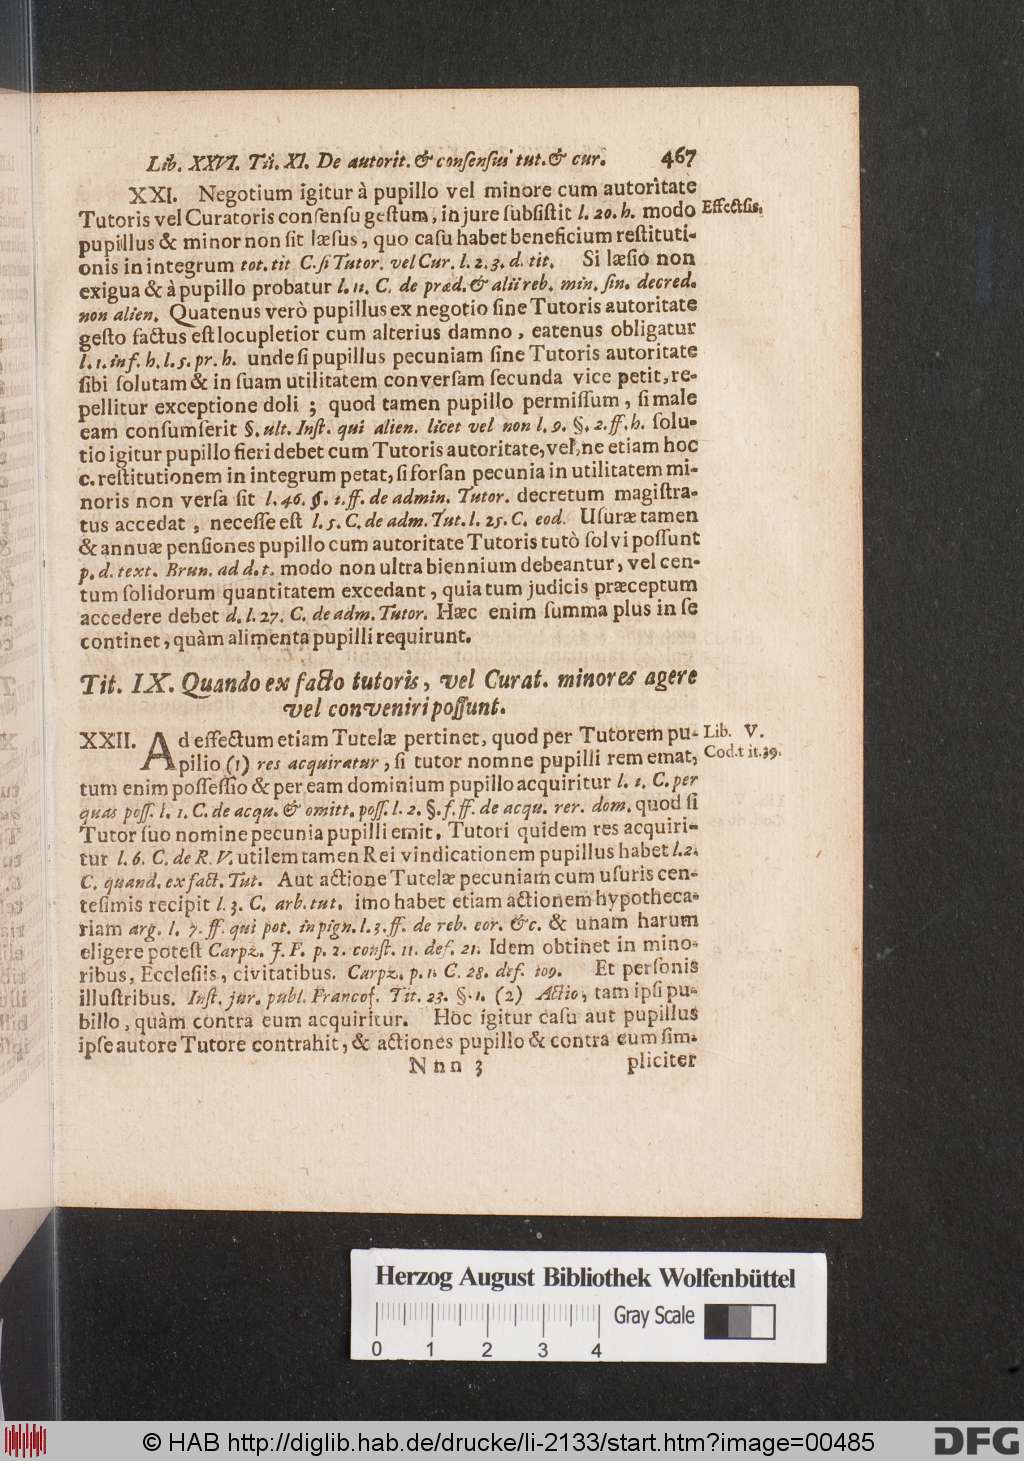 Lib. XXVI. Tit. XI. De autorit. & consensui tut. & cur. 467
XXI. Negotium igitur à pupillo vel minore cum autoritate
Tutoris vel Curatoris consensu gestum, in jure subsistit l. 20. h. modo
Effectis.
pupillus & minor non sit læsus, quo casu habet beneficium restituti-
onis in integrum tot. tit C. si Tutor. vel Cur. l. 2. 3. d. tit. Si læsio non
exigua & à pupillo probatur l. 11. C. de præd. & alii reb. min. sin. decred.
non alien. Quatenus verò pupillus ex negotio sine Tutoris autoritate
gesto factus est locupletior cum alterius damno, eatenus obligatur
l. 1. inf. h. l. 5. pr. h. unde si pupillus pecuniam sine Tutoris autoritate
sibi solutam & in suam utilitatem conversam secunda vice petit, re-
pellitur exceptione doli ; quod tamen pupillo permissum, si male
eam consumserit §. ult. Inst. qui alien. licet vel non l. 9. §. 2. ff. h. solu-
tio igitur pupillo fieri debet cum Tutoris autoritate, vel, ne etiam hoc
c. restitutionem in integrum petat, si forsan pecunia in utilitatem mi-
noris non versa sit l. 46. §. 1. ff. de admin. Tutor. decretum magistra-
tus accedat , necesse est l. 5. C. de adm. Tut. l. 25. C. eod. Usuræ tamen
& annuæ pensiones pupillo cum autoritate Tutoris tutò solvi possunt
p. d. text. Brun. ad d. t. modo non ultra biennium debeantur, vel cen-
tum solidorum quantitatem excedant, quia tum judicis præceptum
accedere debet d. l. 27. C. de adm. Tutor. Hæc enim summa plus in se
continet, quàm alimenta pupilli requirunt.
Tit. IX. Quando ex facto tutoris, vel Curat. minores agere
vel conveniri possunt.
XXII. Ad effectum etiam Tutelæ pertinet, quod per Tutorem pu-
Lib. V.
pilio (1) res acquiratur, si tutor nomne pupilli rem emat,
Cod. t it. 39.
tum enim possessio & per eam dominium pupillo acquiritur l. 1. C. per
quas poss. l. 1. C. de acqu. & omitt. poss. l. 2. §. f. ff. de acqu. rer. dom. quod si
Tutor suo nomine pecunia pupilli emit, Tutori quidem res acquiri-
tur l. 6. C. de R. V. utilem tamen Rei vindicationem pupillus habet l. 2.
C. quand. ex fact. Tut. Aut actione Tutelæ pecuniam cum usuris cen-
tesimis recipit l. 3. C. arb. tut. imo habet etiam actionem hypotheca-
riam arg. l. 7. ff. qui pot. in pign. l. 3. ff. de reb. eor. &c. & unam harum
eligere potest Carpz. J. F. p. 2. const. 11. def. 21. Idem obtinet in mino-
ribus, Ecclesiis, civitatibus. Carpz. p. 1. C. 28. def. 109. Et personis
illustribus. Inst. jur. publ. Francof. Tit. 23. §. 1. (2) Actio, tam ipsi pu-
billo, quàm contra eum acquiritur. Hoc igitur casu aut pupillus
ipse autore Tutore contrahit, & actiones pupillo & contra eum sim-
Nnn 3 pliciter
Herzog August Bibliothek Wolfenbüttel
Gray Scale
0 1 2 3 4
© HAB http://diglib.hab.de/drucke/li-2133/start.htm?image=00485
DFG